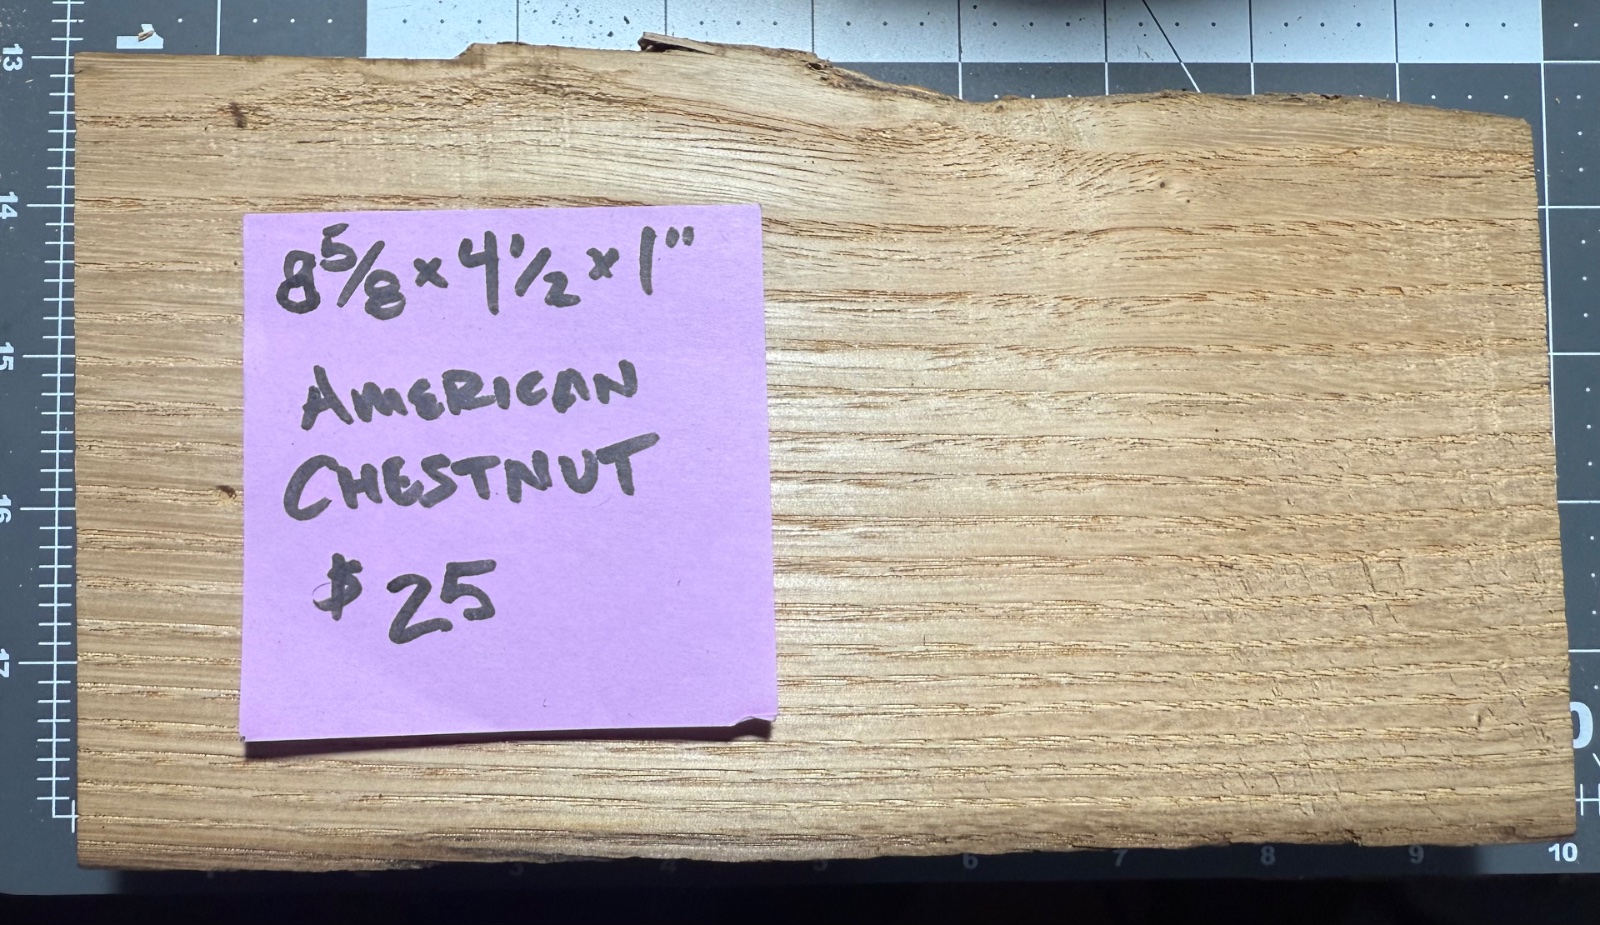 8 5/8 × 4 1/2 × 1"
AMERICAN
CHESTNUT
$ 25
13
14
15
16
17
3
4
5
6
7
8
9
10
0